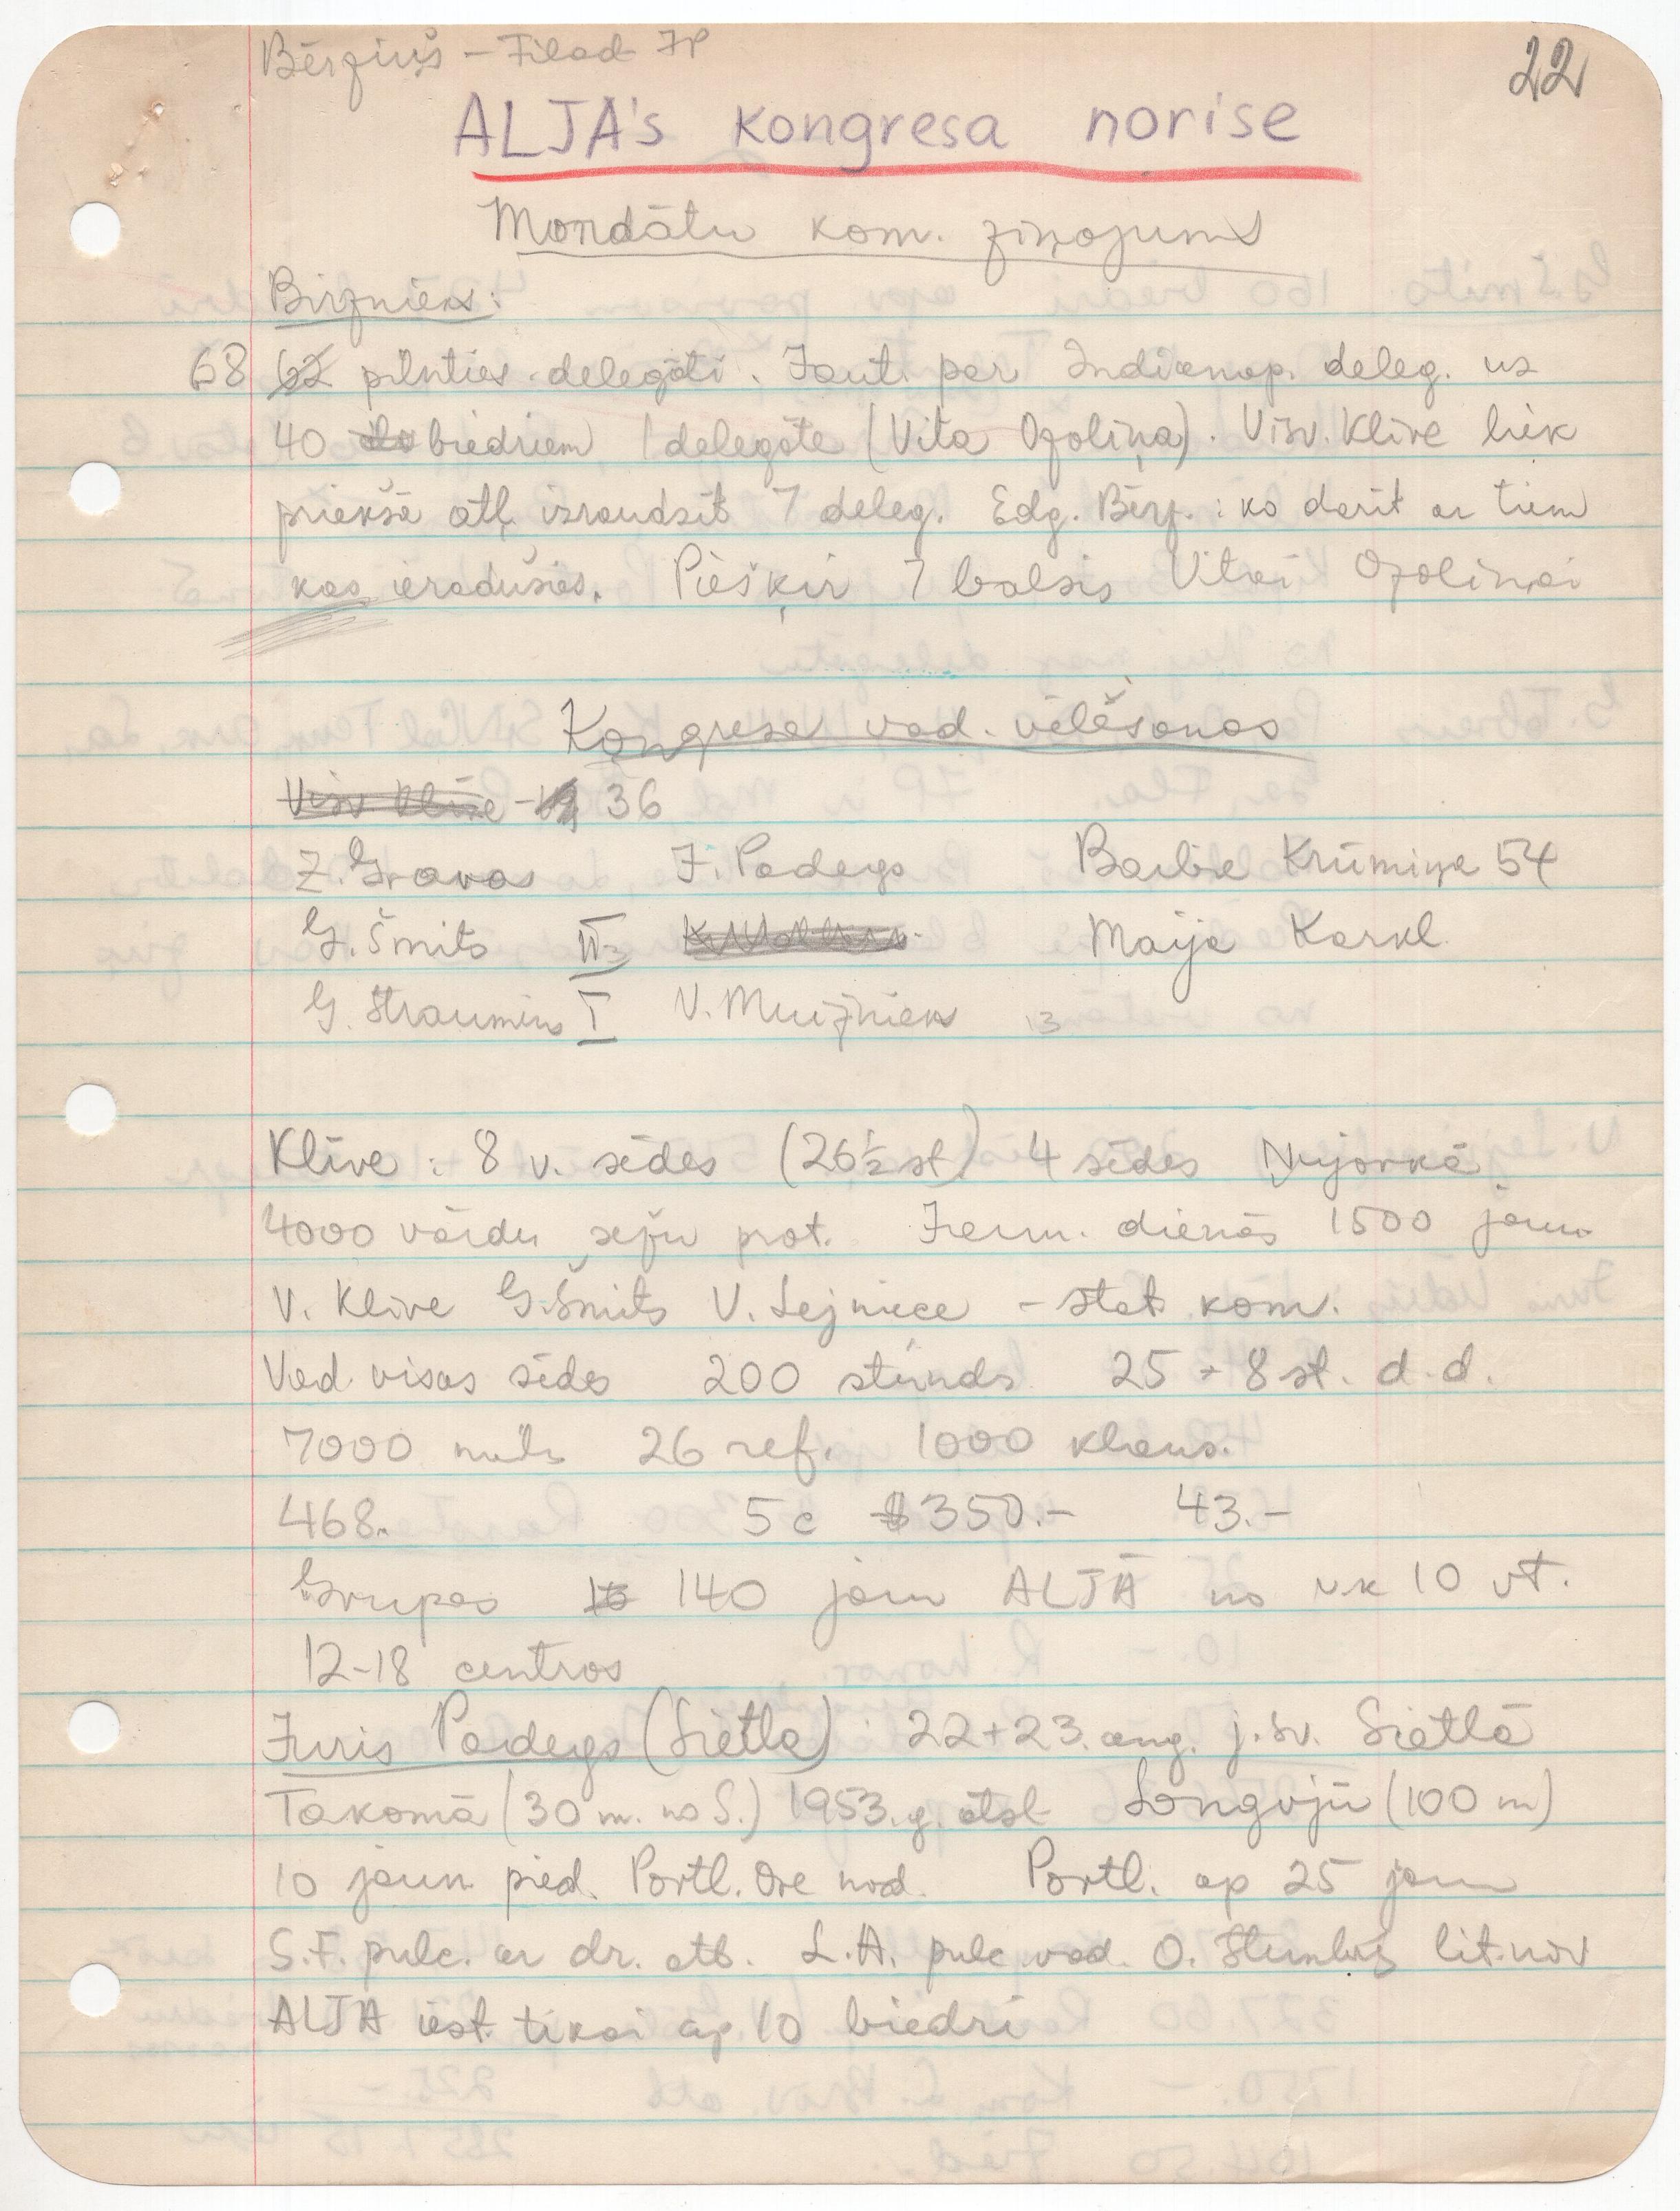 Bērziņš – Filad JP
22
ALJA's kongresa norise
Mandātu kom. ziņojums
Birznieks:
68 62 pilnties. delegāti. Jaut. par Indianap. deleg. uz
40 biedriem 1 delegāte (Vita Ozoliņa). Visv. Klīve liek
priekšā atļ. izraudzīt 7 deleg. Edg. Bērz. : ko darīt ar tiem
kas ieradušies. Piešķir 7 balsis Vitai Ozoliņai
Kongresa vad. vēlēšanas
Visv Klīve – 36
Z. Gravas J. Padegs Barba Krūmiņa 54
G. Šmits II Maija Karkl.
G. Straumēns I V. Muižnieks 13
Klīve : 8 v. sēdes (26½ st) 4 sēdes Ņujorkā
4000 vārdu sēžu prot. Jaun. dienās 1500 jaun.
V. Klīve G. Šmits V. Lejniece – stat. kom.
Vad. visas sēdes 200 stundas 25 + 8 st. d.d.
7000 26 ref. 1000 klaus.
468. 5 c $350.– 43.–
Grupas 140 jaun ALJĀ no 10 vt.
12–18 centros
Juris Padegs (Sietla) : 22+23. aug. j. sv. Sietlā
Takomā (30 m. no S.) 1953. g. atst Longvjū (100 m)
10 jaun. pied. Portl. Ore nod. Portl. ap 25 jaun
S.F. pulc. ar dr. atb. L.A. pulc. vad. O. Stumbrs lit. nov
ALJA iest. tikai ap 10 biedri